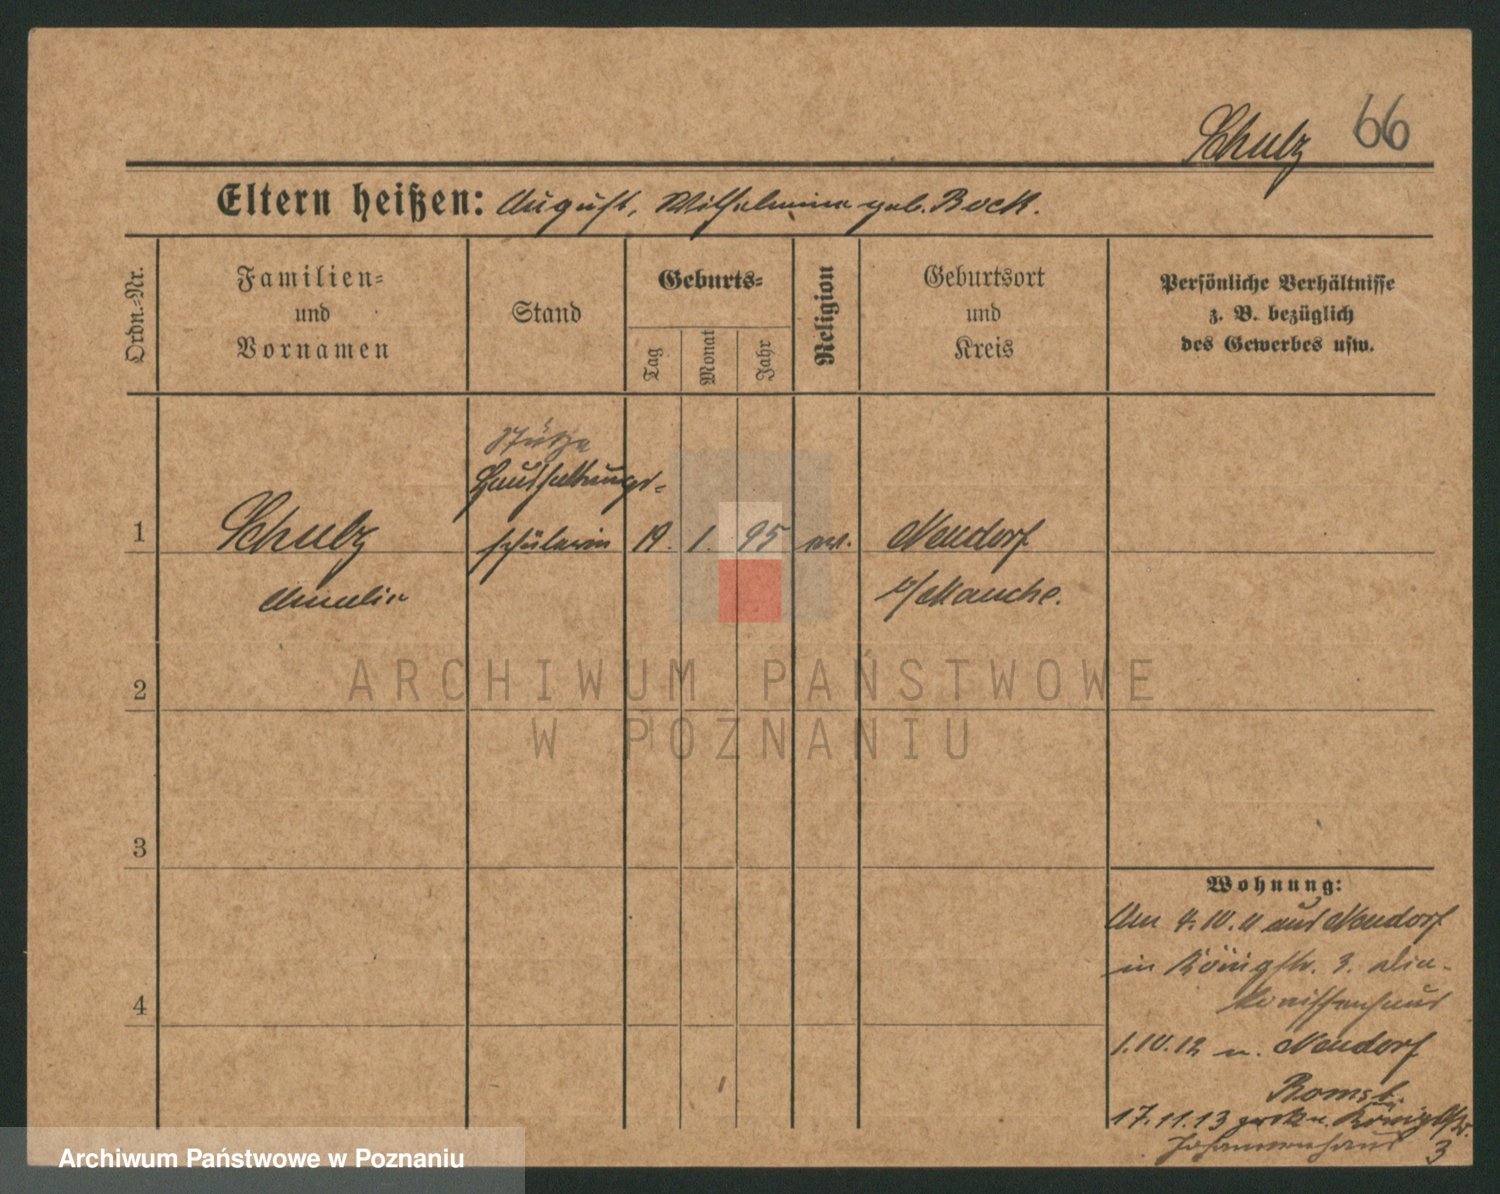 Schulz 66
Eltern heißen: August, Wilhelmine geb. Bock.
Ordn.-Nr.
Familien-
und
Vornamen
Stand
Geburts-
Tag
Monat
Jahr
Religion
Geburtsort
und
Kreis
Persönliche Verhältnisse
z. B. bezüglich
des Gewerbes usw.
Stütze
Haushaltungs-
1 Schulz schülerin 19. 1. 95 ev. Neudorf
Amalie b/Mauche.
ARCHIWUM PAŃSTWOWE
W POZNANIU
2
3
Wohnung:
Am 4.10.11 aus Neudorf
in Königstr. 3. Dia-
konissenhaus
4
1.10.12 n. Neudorf
Bomst.
17.11.13 zurück n. Königstr.
3
Archiwum Państwowe w Poznaniu